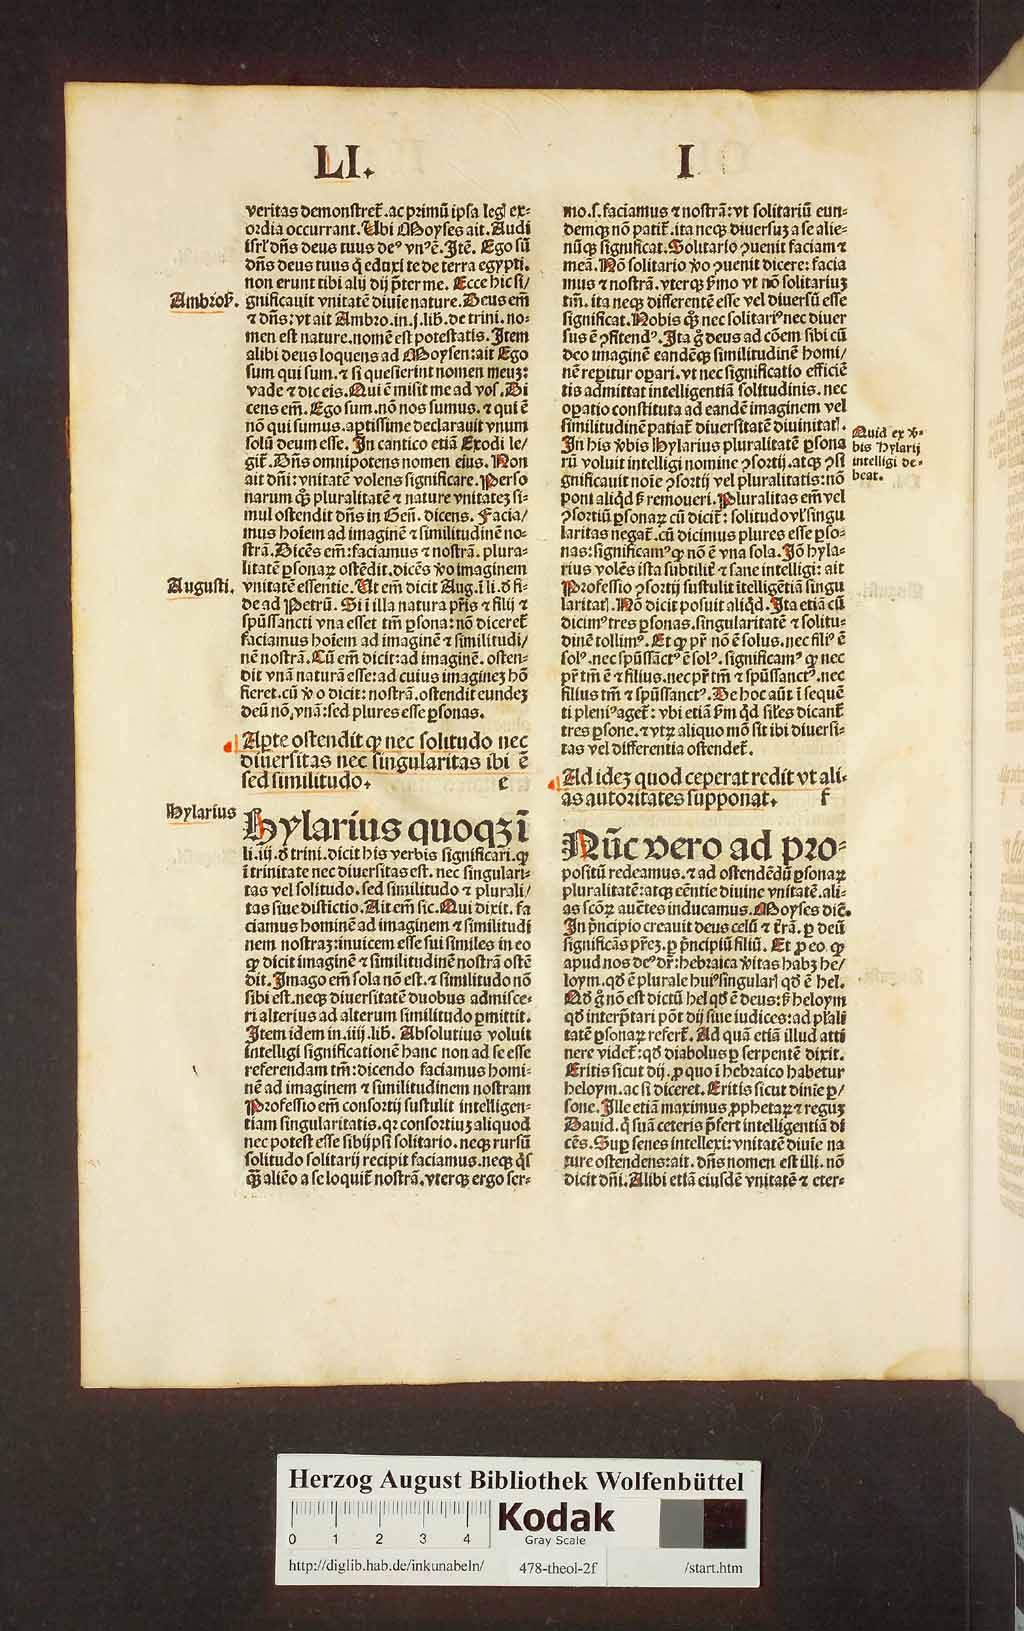 LI. I
veritas demonstret᷑.ac primū ipsa leg̃ ex⸗
ordia occurrant.Ubi Moyses ait.Audi
isrl̃ dn̄s deus tuus deꝰ vnꝰ ē.Itē. Ego sū
dn̄s deus tuus q̇ eduxi te de terra egypti.
non erunt tibi alij dij p̄ter me. Ecce hic si/
Ambros̃.
gnificauit vnitatē diuīe nature.Deus em̄
⁊ dn̄s:vt ait Ambro.in.j.lib.de trini. no⸗
men est nature.nomē est potestatis. Item
alibi deus loquens ad Moysen:ait Ego
sum qui sum.⁊ si quesierint nomen meuꝫ:
vade ⁊ dic eis.Qui ē misit me ad vos.Di
cens em̄. Ego sum.nō nos sumus.⁊ qui ē
nō qui sumus.aptissime declarauit vnum
solū deum esse. In cantico etiā Exodi le/
git᷑. Dn̄s omnipotens nomen eius. Non
ait dn̄i:vnitatē volens significare. Perso
narum qȝ pluralitatē ⁊ nature vnitateꝫ si⸗
mul ostendit dn̄s in Gen̄. dicens. Facia/
mus hoīem ad imaginē ⁊ similitudinē no⸗
strā.Dicēs em̄:faciamus ⁊ nostrā. plura⸗
litatē ꝑsonaꝝ ostēdit.dicēs v̊o imaginem
Augusti.
vnitatē essentie. Ut em̄ dicit Aug.ī li.ð fi⸗
de ad Petrū. Si ī illa natura pr̄is ⁊ filij ⁊
spūssancti vna esset tm̄ ꝑsona:nō diceret᷑
faciamus hoīem ad imaginē ⁊ similitudi/
nē nostrā.Cū em̄ dicit:ad imaginē. osten⸗
dit vnā naturā esse:ad cuius imagineꝫ hō
fieret.cū v̊o dicit: nostrā.ostendit eundeꝫ
deū nō,vnā:sed plures esse ꝑsonas.
Apte ostendit ꝙ nec solitudo nec
diuersitas nec singularitas ibi ē
sed similitudo. e
Hylarius
Hylarius quoqꝫ ī
li.iij.ð trini.dicit his verbis significari.ꝙ
ī trinitate nec diuersitas est. nec singulari⸗
tas vel solitudo.sed similitudo ⁊ plurali/
tas siue distīctio.Ait em̄ sic.Qui dixit. fa
ciamus hominē ad imaginem ⁊ similitudi
nem nostraꝫ:inuicem esse sui similes in eo
ꝙ dicit imaginē ⁊ similitudinē nostrā ostē
dit.Imago em̄ sola nō est.⁊ similitudo nō
sibi est.neqꝫ diuersitatē duobus admisce⸗
ri alterius ad alterum similitudo ꝑmittit.
Item idem in.iiij.lib. Absolutius voluit
intelligi significationē hanc non ad se esse
referendam tm̄:dicendo faciamus homi⸗
nē ad imaginem ⁊ similitudinem nostram
Professio em̄ consortij sustulit intelligen⸗
tiam singularitatis.qꝛ consortiuꝫ aliquod
nec potest esse sibijpsi solitario.neqꝫ rursū
solitudo solitarij recipit faciamus.neqꝫ q̇s
qȝ aliēo a se loquit᷑ nostrā.vterqꝫ ergo ser⸗
mo.s.faciamus ⁊ nostrā:vt solitariū eun⸗
demqꝫ nō patit᷑.ita neqꝫ diuersuꝫ a se alie⸗
nūqꝫ significat.Solitario ꝯuenit faciam ⁊
meā.Nō solitario v̊o ꝯuenit dicere: facia
mus ⁊ nostrā.vterqꝫ s̄mo vt nō solitariuꝫ
tm̄. ita neqꝫ differentē esse vel diuersū esse
significat.Nobis qȝ nec solitariꝰ nec diuer
sus ē ꝯfitendꝰ.Ita g̊ deus ad cōem sibi cū
deo imaginē eandēqꝫ similitudinē homi/
nē reꝑitur oꝑari.vt nec significatio efficiē
tis admittat intelligentiā solitudinis. nec
oꝑatio constituta ad eandē imaginem vel
similitudinē patiat᷑ diuersitatē diuinitatꝭ.
Quid ex v̊⸗
bis Hylarij
intelligi de⸗
beat.
In his v̊bis Hylarius pluralitatē ꝑsona
rū voluit intelligi nomine ꝯsortij.atqꝫ ꝯsi
gnificauit noīe ꝯsortij vel pluralitatis:nō
poni aliq̇d s̄ remoueri. Pluralitas em̄ vel
ꝯsortiū ꝑsonaꝝ cū dicit᷑: solitudo vl̃ singu
laritas negat᷑.cū dicimus plures esse ꝑso⸗
nas:significamꝰ ꝙ nō ē vna sola. Iō hyla⸗
rius volēs ista subtilit᷑ ⁊ sane intelligi: ait
Professio ꝯsortij sustulit ītelligētiā singu
laritatꝭ.Nō dicit posuit aliq̇d.Ita etiā cū
dicimꝰ tres ꝑsonas.singularitatē ⁊ solitu⸗
dinē tollimꝰ.Et ꝙ pr̄ nō ē solus.nec filiꝰ ē
solꝰ.nec spūssāctꝰ ē solꝰ.significamꝰ ꝙ nec
pr̄ tm̄ ē ⁊ filius.nec pr̄ tm̄ ⁊ spūssanctꝰ.nec
filius tm̄ ⁊ spūssanctꝰ.De hoc aūt ī sequē
ti pleniꝰaget᷑: vbi etiā s̄m q̇d sil̃es dicant᷑
tres ꝑsone.⁊ vtꝝ aliquo mō sit ibi diuersi⸗
tas vel differentia ostendet᷑.
Ad ideꝫ quod ceperat redit vt ali⸗
as autoritates supponat. f
Nūc vero ad pro⸗
positū redeamus.⁊ ad ostendēdū ꝑsonaꝝ
pluralitatē:atqꝫ eēntie diuine vnitatē.ali⸗
as scōꝝ auc̄tes inducamus.Moyses dic̄.
In p̄ncipio creauit deus celū ⁊ t̄rā. ꝑ deū
significās pr̄eꝫ.ꝑ p̄ncipiū filiū. Et ꝓ eo ꝙ
apud nos deꝰ dr̄:hebraica v̊itas habꝫ he/
loym.qð ē plurale huiꝰsingularꝭ qð ē hel.
Qð g̊ nō est dictū hel qð ē deus:s̄ heloym
qð interp̄tari pōt dij siue iudices:ad pl̃ali
tatē ꝑsonaꝝ refert᷑. Ad quā etiā illud atti
nere videt᷑:qð diabolus ꝑ serpentē dixit.
Eritis sicut dij.ꝓ quo ī hebraico habetur
heloym.ac si diceret.Eritis sicut diuīe ꝑ/
sone.Ille etiā maximus ꝓphetaꝝ ⁊ reguꝫ
Dauid.q̇ suā ceteris p̄fert intelligentiā di
cēs.Suꝑ senes intellexi:vnitatē diuīe na
ture ostendens:ait. dn̄s nomen est illi. nō
dicit dn̄i.Alibi etiā eiusdē vnitatē ⁊ eter⸗
Herzog August Bibliothek Wolfenbüttel
0 1 2 3 4
Kodak
Gray Scale
http://diglib.hab.de/inkunabeln/ 478-theol-2f /start.htm